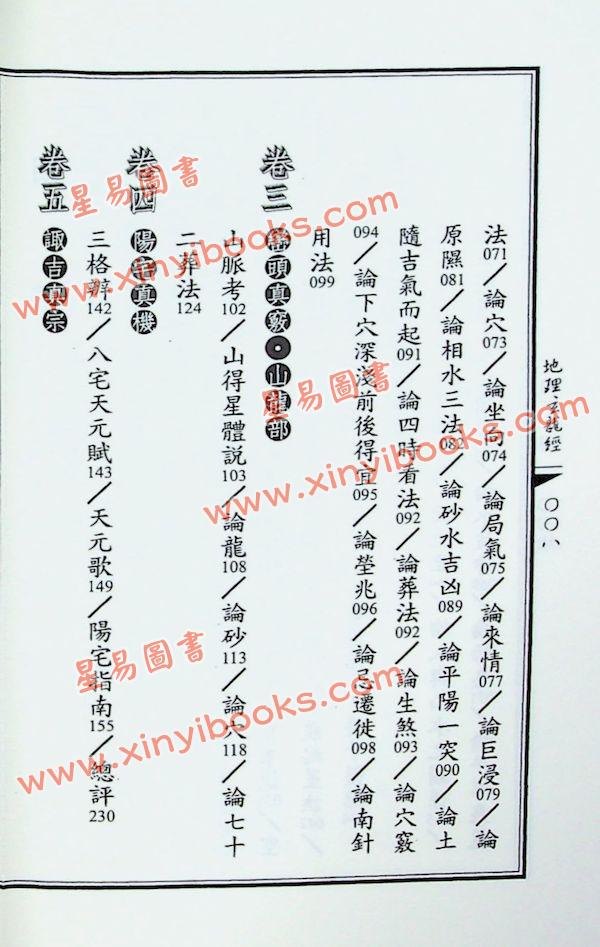 地理玄龍經
〇〇八
法071／論穴073／論坐向074／論局氣075／論來情077／論巨浸079／論
原隰081／論相水三法082／論砂水吉凶089／論平陽一突090／論土
隨吉氣而起091／論四時看法092／論葬法092／論生煞093／論穴竅
094／論下穴深淺前後得宜095／論塋兆096／論忌遷徙098／論南針
用法099
卷三
巒頭真竅●山龍部
山脈考102／山得星體說103／論龍108／論砂113／論穴118／論七十
二葬法124
卷四
陽宅真機
三格辨142／八宅天元賦143／天元歌149／陽宅指南155／總評230
卷五
諏吉真宗
星易圖書
www.xinyibooks.com
星易圖書
www.xinyibooks.com
星易圖書
www.xinyibooks.com